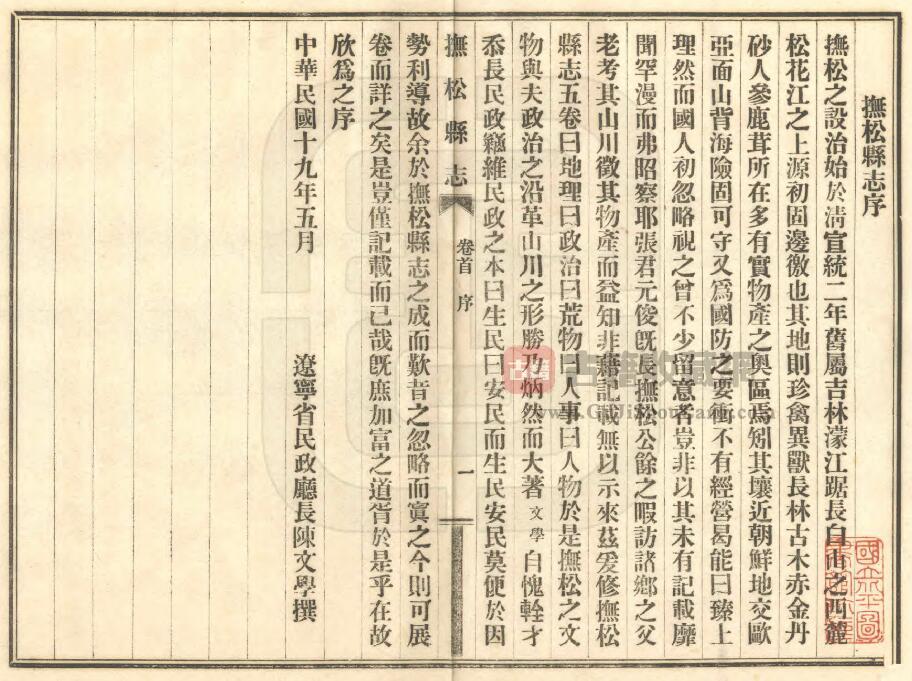 撫松縣志序
撫松之設治始於淸宣統二年舊屬吉林濛江踞長白山之西麓
松花江之上源初固邊徼也其地則珍禽異獸長林古木赤金丹
砂人參鹿茸所在多有實物產之奧區焉矧其壤近朝鮮地交歐
亞面山背海險固可守又爲國防之要衝不有經營曷能曰臻上
理然而國人初忽略視之曾不少留意者豈非以其未有記載靡
聞罕漫而弗昭察耶張君元俊旣長撫松公餘之暇訪諸鄕之父
老考其山川徵其物產而益知非藉記載無以示來茲爰修撫松
縣志五卷曰地理曰政治曰荒物曰人事曰人物於是撫松之文
物與夫政治之沿革山川之形勝乃炳然而大著文學自愧輇才
忝長民政纚維民政之本曰生民曰安民而生民安民莫便於因
撫松縣志 卷首 序 一
勢利導故余於撫松縣志之成而歎昔之忽略而寘之今則可展
卷而詳之矣是豈僅記載而已哉旣庶加富之道胥於是乎在故
欣爲之序
中華民國十九年五月 遼寧省民政廳長陳文學撰
古籍收藏网